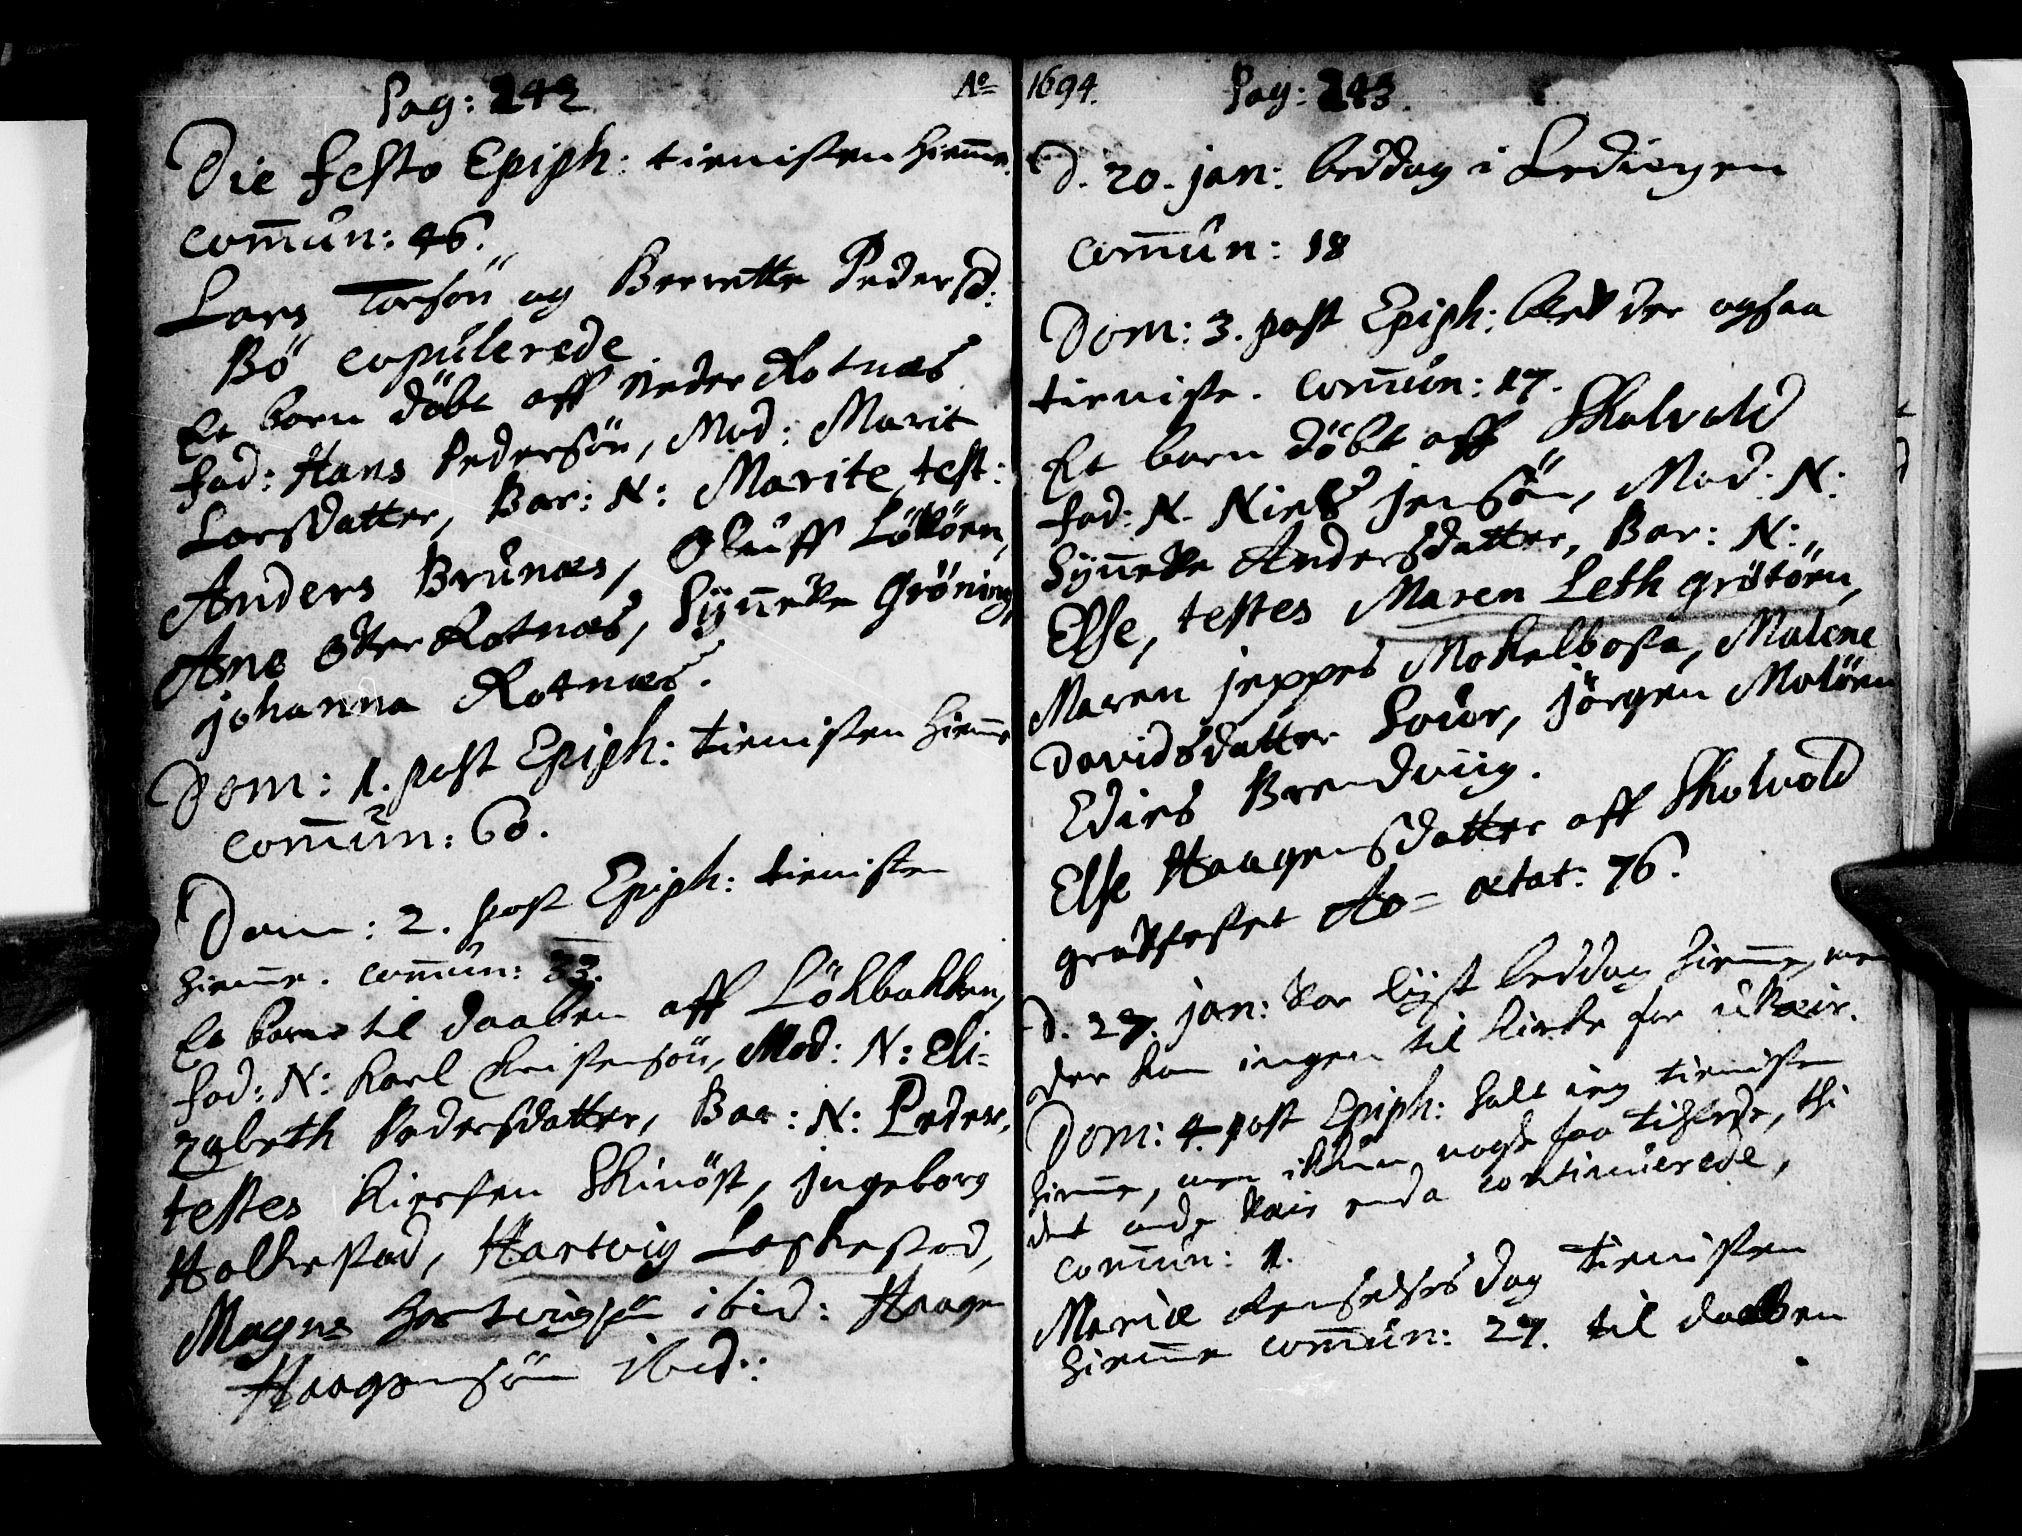 Pag: 242
Die Festo Epiph: tienisten hiem̄e.
com̄un: 46.
Lars Torsön og Berrette Pedersd:
Bö copulerede
Et barn döbt aff Neder Rotnæs
Fad: Hans Pedersön, Mod: Marit
Larsdatter, Bar: N: Marite, test:
Anders Brunæs, Oluff Lökören,
Ane Över Rotnæs, Syn̄eve Gröning,
Johanna Rotnæs.
Dom: 1. post Epiph: tienisten hiem̄e
com̄un: 60.
Dom: 2. post Epiph: tienisten
hiem̄e. com̄un: 33.
Et barn til daaben aff Lökbakken,
Fad: N: Karl Christensön, Mod: N: Eli-
zabeth Pedersdatter, Bar: N: Peder,
testes Kirsten Skinöst, Ingeborg
Halkestad, Hartvig Laskestad,
Magns Hartvigsön ibid: Haagen
Haagensön ibid:
Ao 1694.
Pag: 243.
D. 20. jan: beddag i Ledingen
com̄un: 18
Dom: 3. post Epiph: der ogsaa
tieniste. com̄un: 17.
Et barn döbt aff Skolvold
Fad: N. Niels Jensön, Mod: N:
Syn̄eve Andersdatter, Bar: N:
Else, testes Maren Leth Grötöen,
Maren Jeppes Mokelbosta, Malene
Davidsdatter, Jörgen Molöen
Edies Brendviig.
Else Haagensdatter aff Skolvold
graffestet Ao= ætat: 76.
D. 27. jan: var lyst beddag hiem̄e, men
der kom ingen til kirke for uveir.
Dom: 4. post Epiph: holt ieg tienisten
hiem̄e, men ikkun nogle faa tilstede, thi
det onde veir enda continuerede,
com̄un: 1.
Mariæ Renselsesdag tienisten
hiem̄e com̄un: 27. til daaben